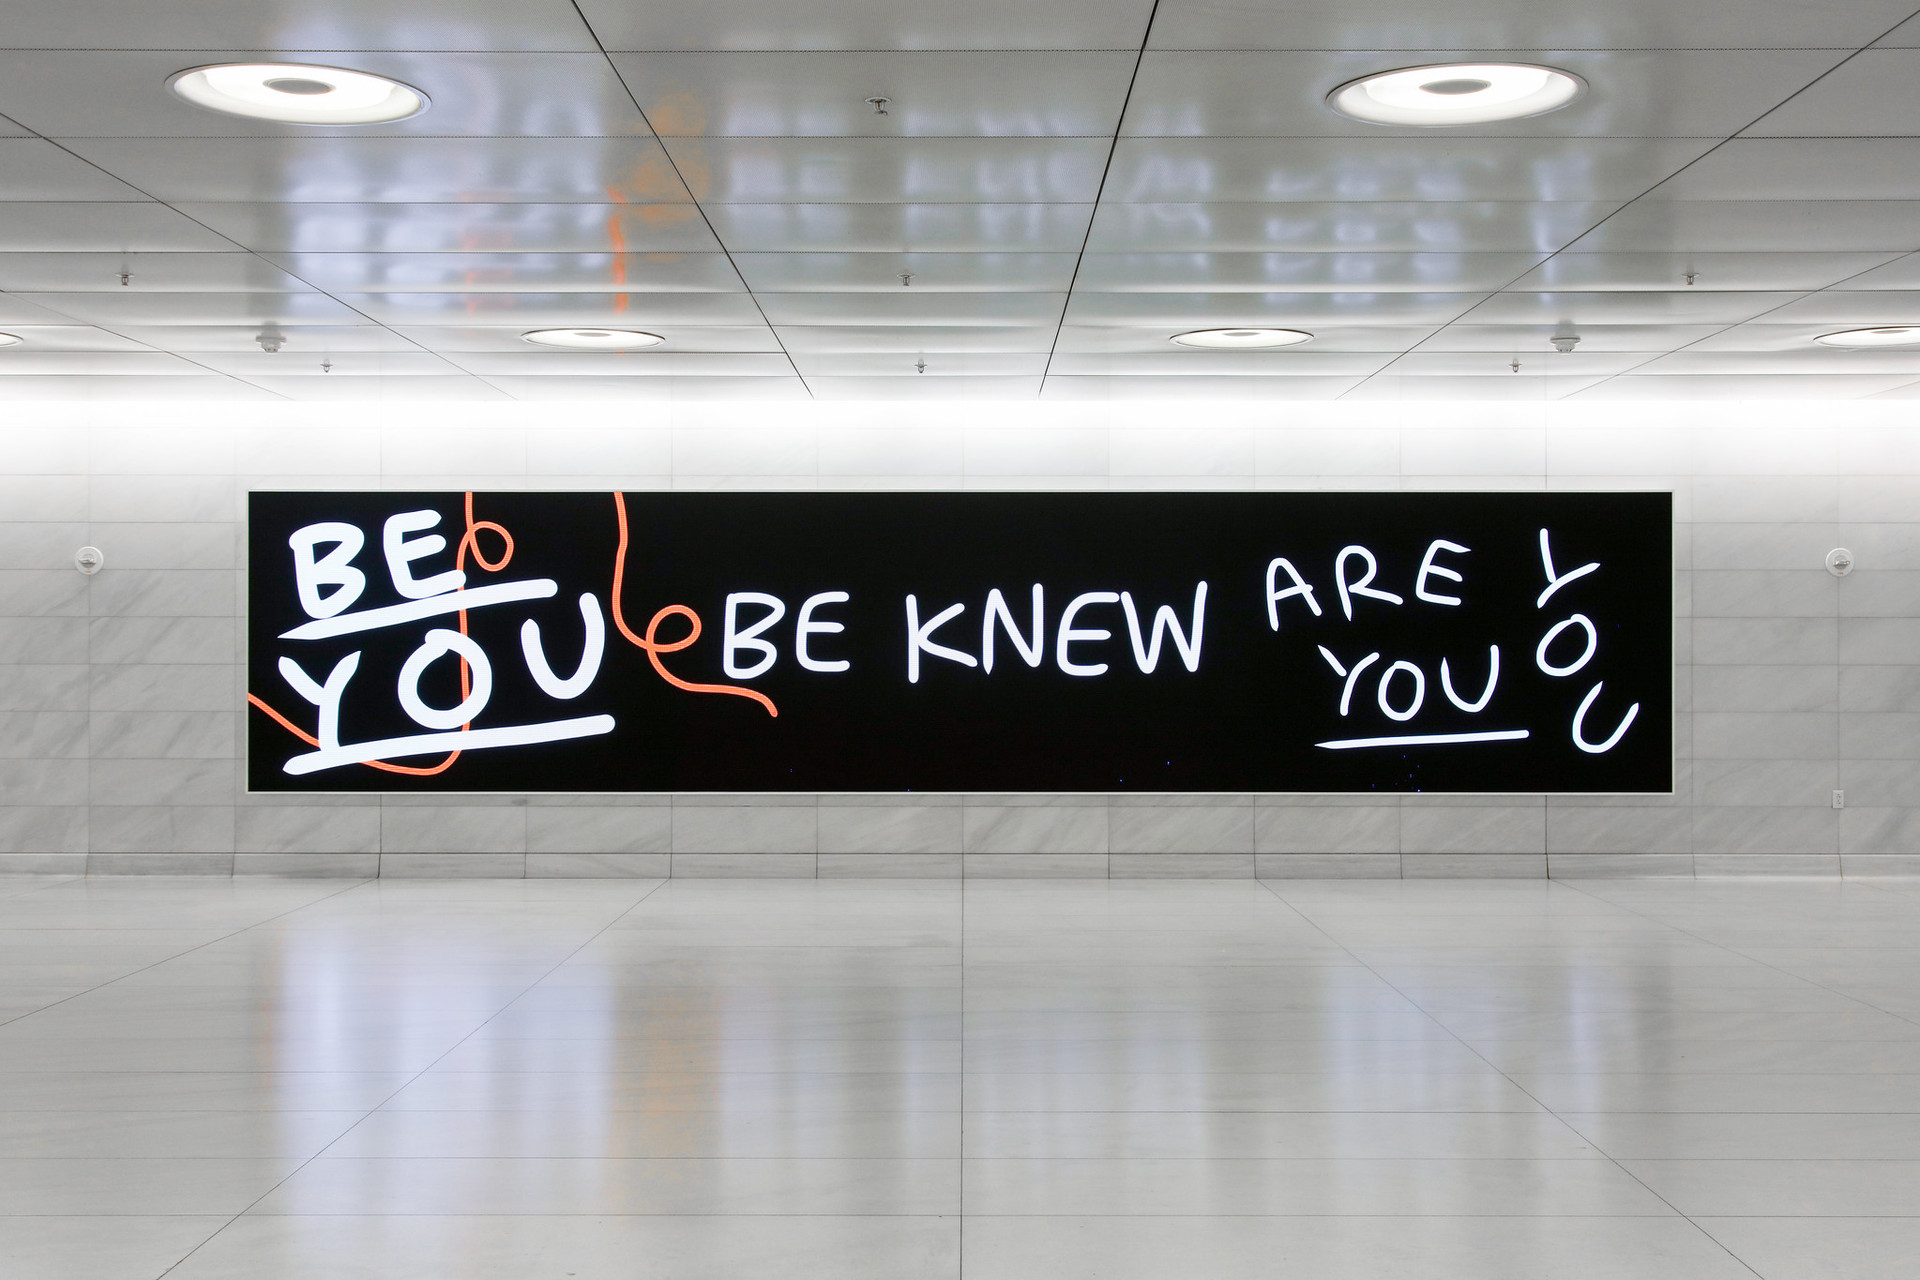 BE
YOU
BE KNEW
ARE
YOU
YOU